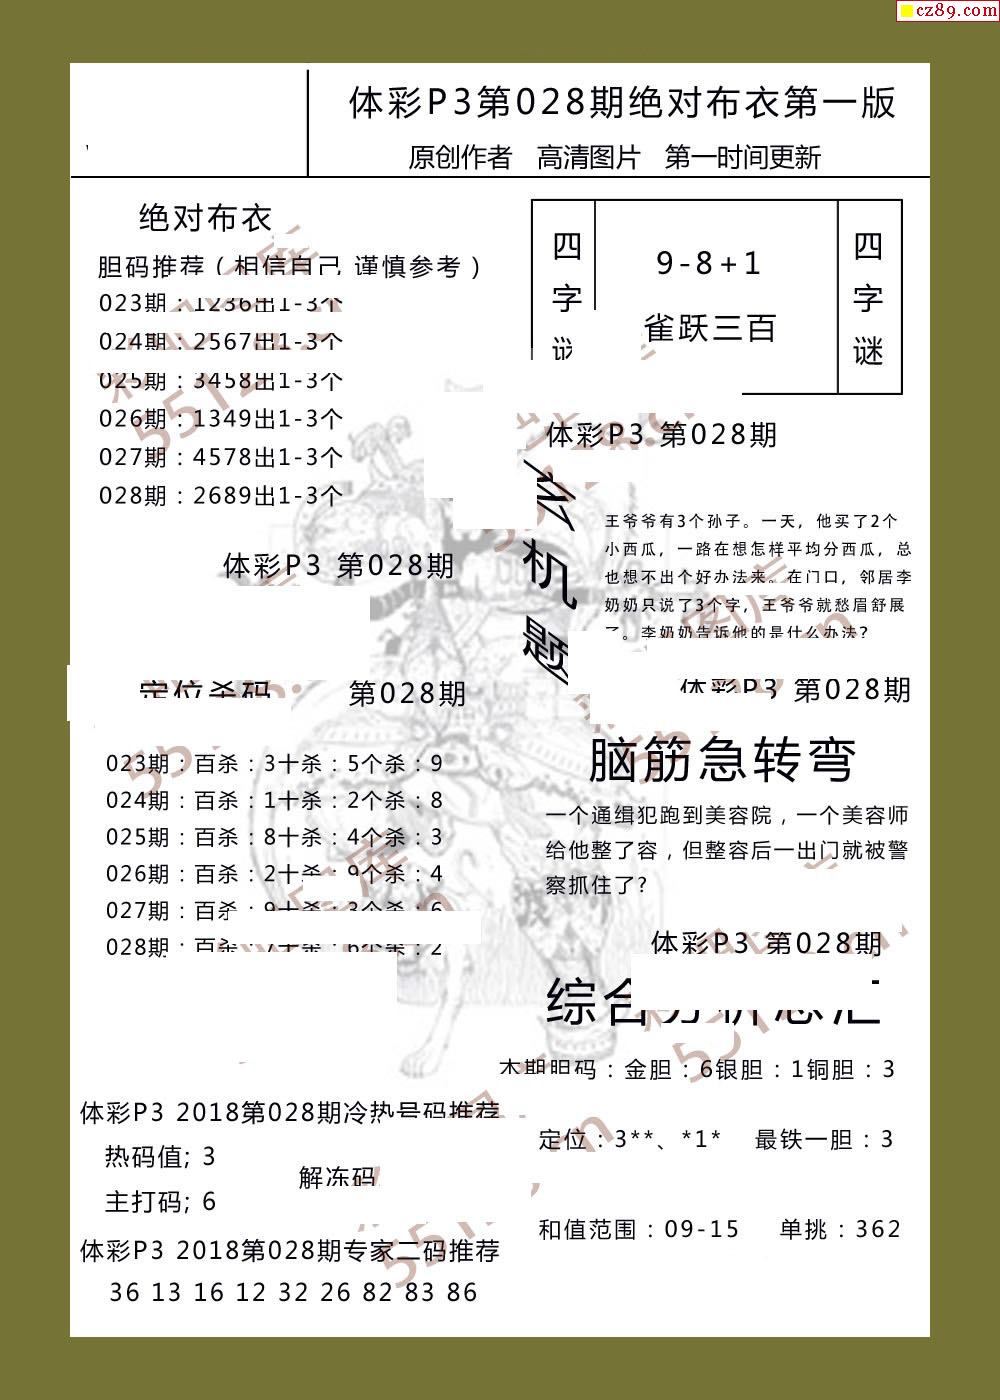 cz89.com
体彩P3第028期绝对布衣第一版
原创作者 高清图片 第一时间更新
绝对布衣
胆码推荐(相信自己 谨慎参考)
023期:1236出1-3个
024期:2567出1-3个
025期:3458出1-3个
026期:1349出1-3个
027期:4578出1-3个
028期:2689出1-3个
四字谜
9-8+1
雀跃三百
四字谜
体彩P3 第028期
机题
王爷爷有3个孙子。一天,他买了2个
小西瓜,一路在想怎样平均分西瓜,总
也想不出个好办法来。在门口,邻居李
奶奶只说了3个字,王爷爷就愁眉舒展
了。李奶奶告诉他的是什么办法?
体彩P3 第028期
定位杀码 第028期
023期:百杀:3十杀:5个杀:9
024期:百杀:1十杀:2个杀:8
025期:百杀:8十杀:4个杀:3
026期:百杀:2十杀:9个杀:4
027期:百杀:9十杀:3个杀:6
028期:百杀:7十杀:6个杀:2
体彩P3 第028期
脑筋急转弯
一个通缉犯跑到美容院,一个美容师
给他整了容,但整容后一出门就被警
察抓住了?
体彩P3 第028期
综合分析总汇
本期胆码:金胆:6银胆:1铜胆:3
定位:3**、*1* 最铁一胆:3
和值范围:09-15 单挑:362
体彩P3 2018第028期冷热号码推荐
热码值; 3
解冻码
主打码; 6
体彩P3 2018第028期专家二码推荐
36 13 16 12 32 26 82 83 86